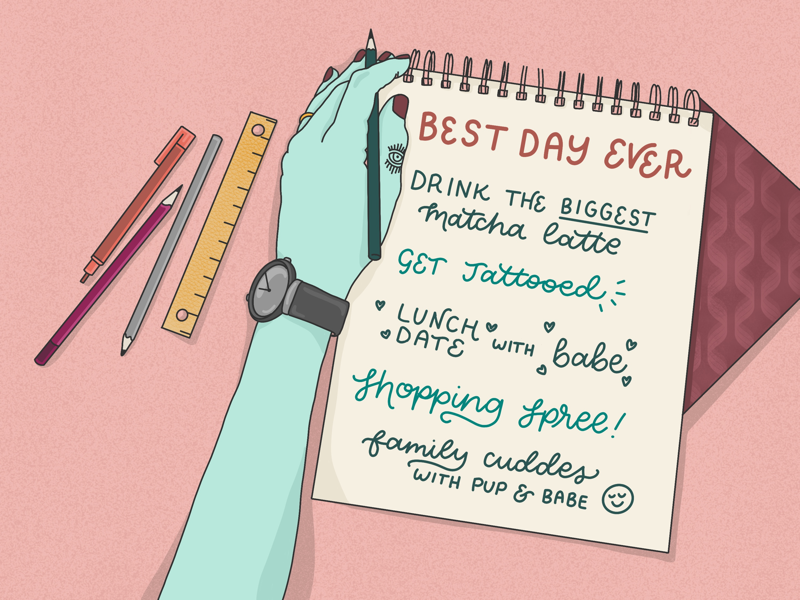 BEST DAY EVER
DRINK THE BIGGEST
matcha latte
GET Tattooed
LUNCH DATE WITH babe
Shopping Spree!
family cuddes
WITH PUP & BABE